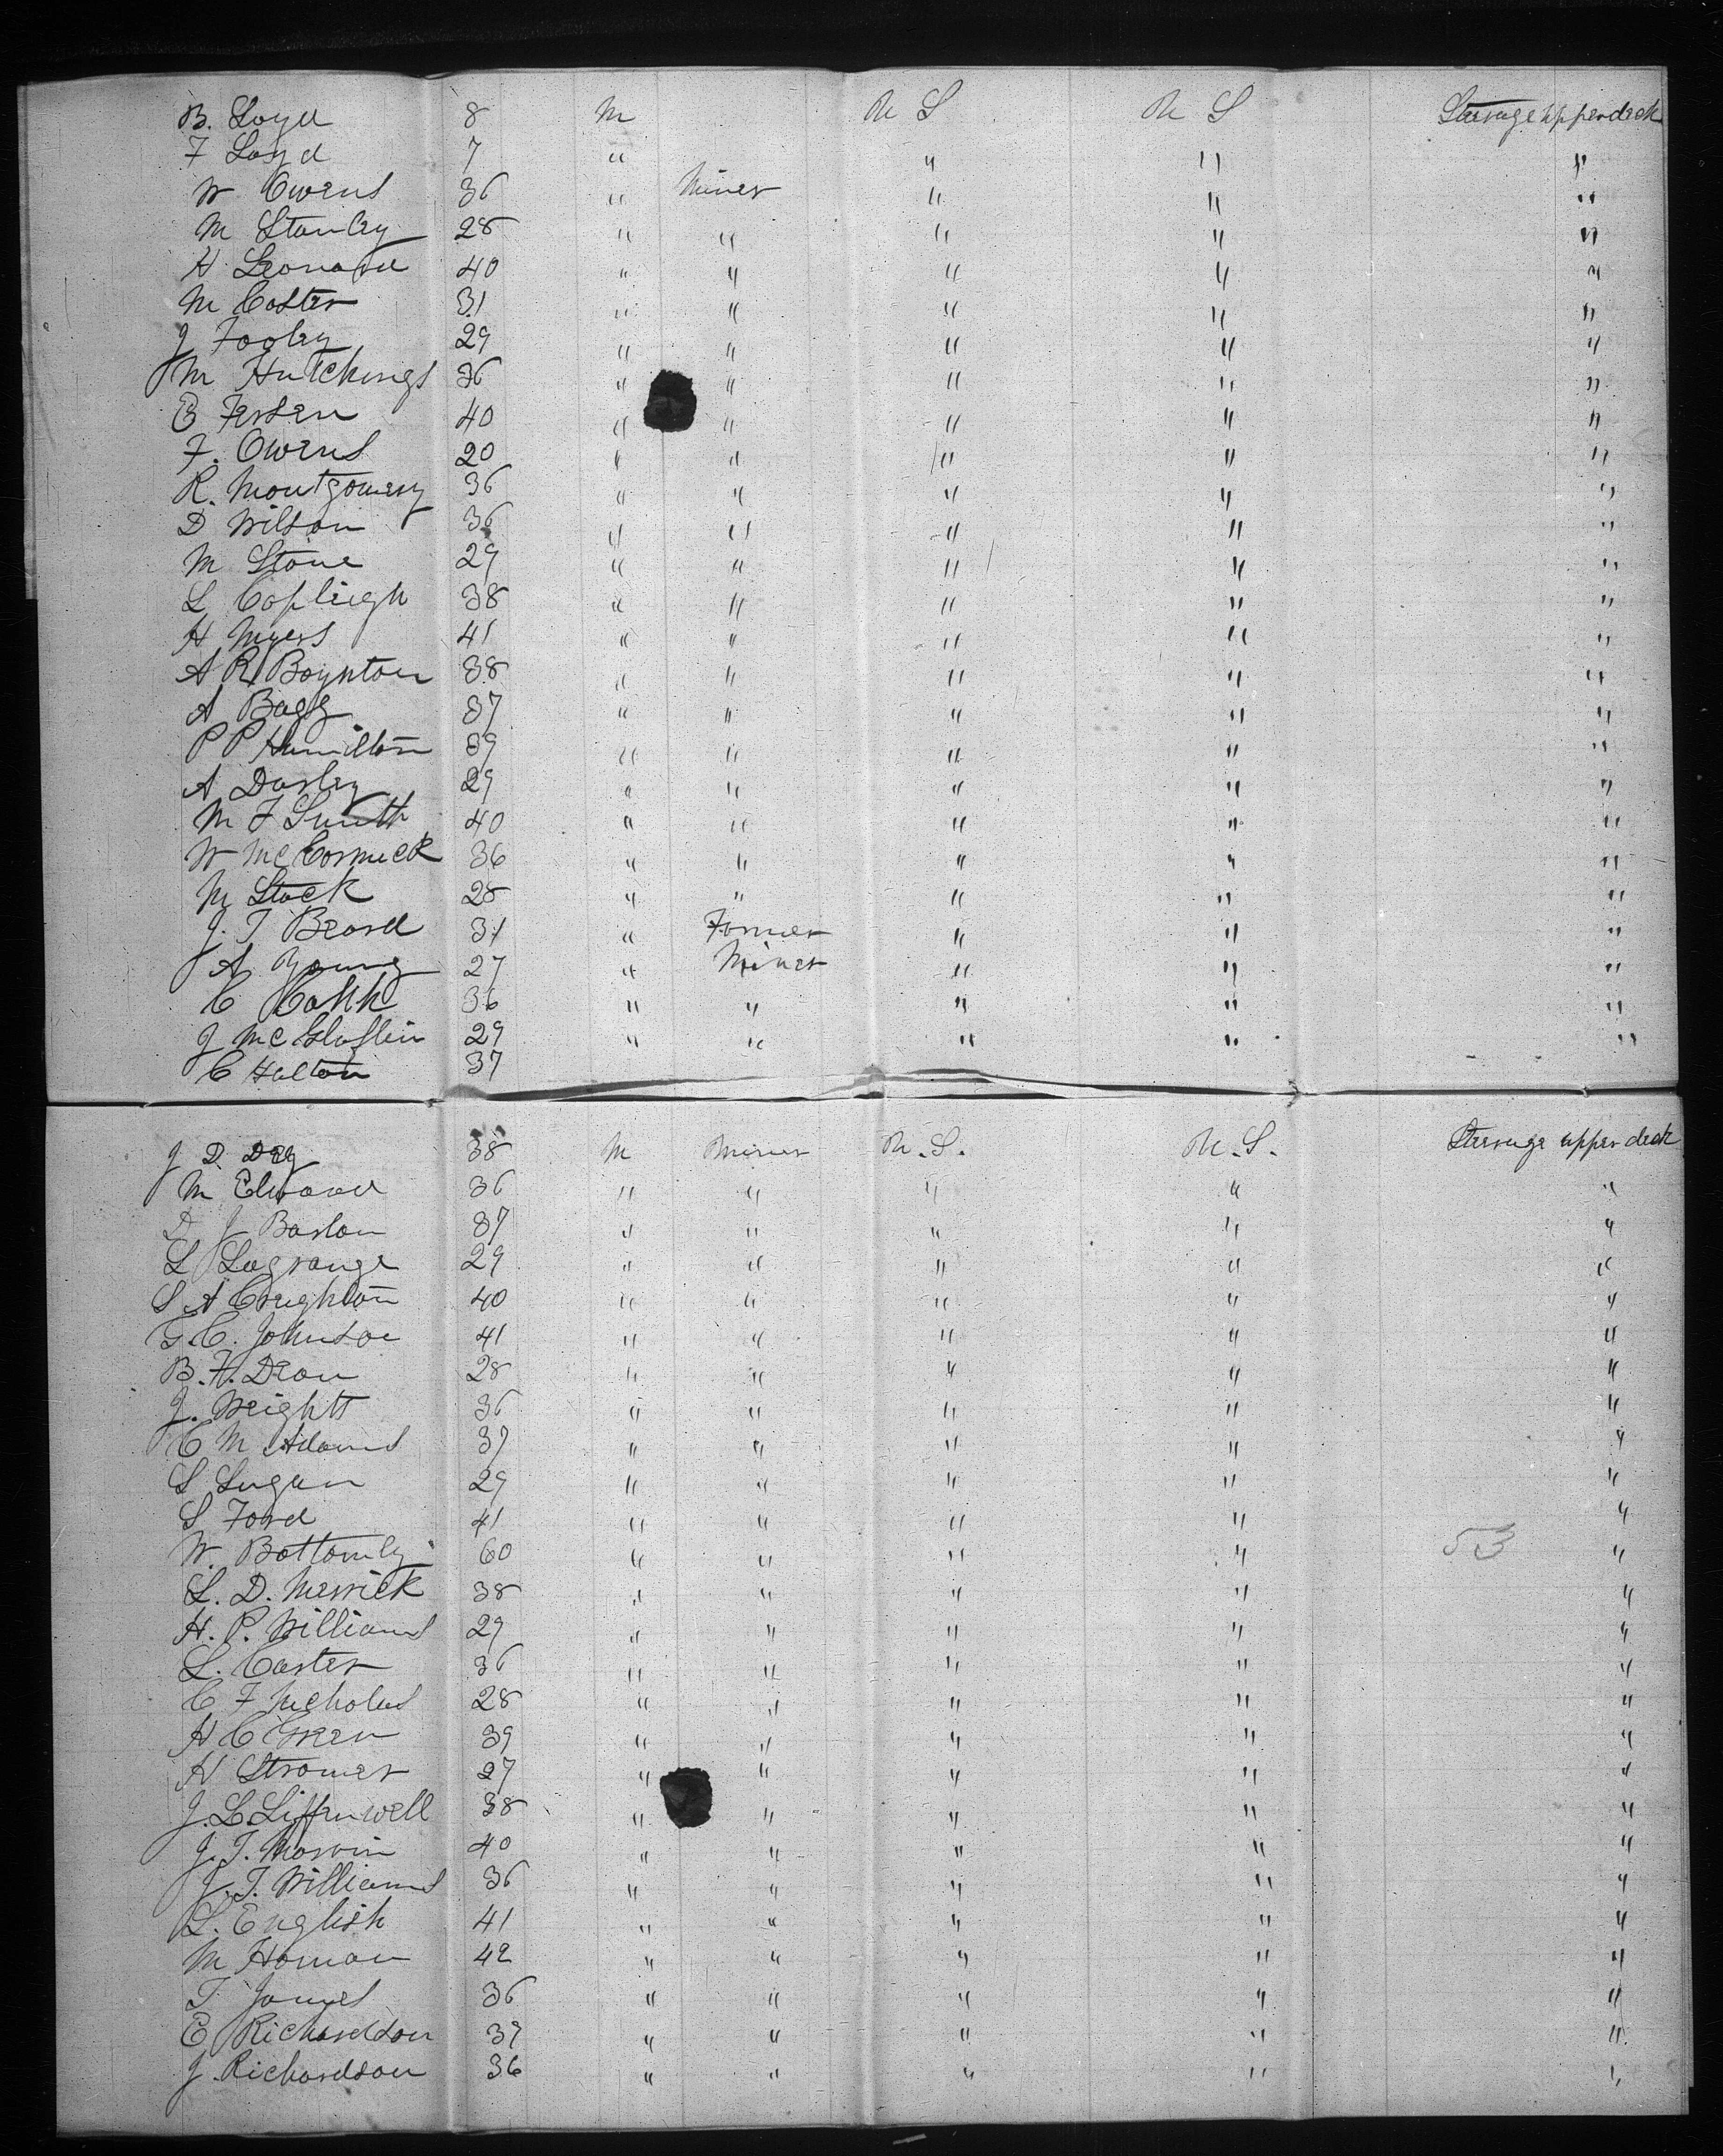 B. Loyd 8 M U S U S Steerage upper deck
F Loyd 7 " " " "
W Owens 36 " Miner " " "
M Stanley 28 " " " " "
H Leonard 40 " " " " "
M Coster 31 " " " " "
J Fogley 29 " " " " "
M Hutchings 36 " " " " "
40 " " " " "
F. Owens 20 " " " " "
R. Montgomery 36 " " " " "
D Wilson 36 " " " " "
M Stone 29 " " " " "
L 38 " " " " "
H Myers 41 " " " " "
A R Boynton 38 " " " " "
A Bagg 37 " " " " "
P P Hamilton 39 " " " " "
A Darley 29 " " " " "
M F Smith 40 " " " " "
W McCormick 36 " " " " "
M Stock 28 " " " " "
J. T Beard 31 " Farmer " " "
A Young 27 " Miner " " "
C 36 " " " " "
J McGloflin 29 " " " " "
C Halton 37
J D. Day 38 M Miner U.S. U.S. Steerage upper deck
M Elwood 36 " " " " "
D J Barlow 37 " " " " "
L Lagrange 29 " " " " "
S A Creighton 40 " " " " "
G. C. Johnson 41 " " " " "
B. F. Dean 28 " " " " "
J. Weightt 36 " " " " "
C M Adams 37 " " " " "
S Sugan 29 " " " " "
S Ford 41 " " " " "
W. Bottomly 60 " " " " 53 "
L. D. Merrick 38 " " " " "
H. P. Williams 29 " " " " "
L. Carter 36 " " " " "
C F Nicholas 28 " " " " "
H C Green 39 " " " " "
H Stromer 27 " " " " "
J. L. Liffenwell 38 " " " " "
J. T. Marvin 40 " " " " "
J. T. Williams 36 " " " " "
L. English 41 " " " " "
M Homan 42 " " " " "
T James 36 " " " " "
E Richardson 37 " " " " "
J. Richardson 36 " " " " "